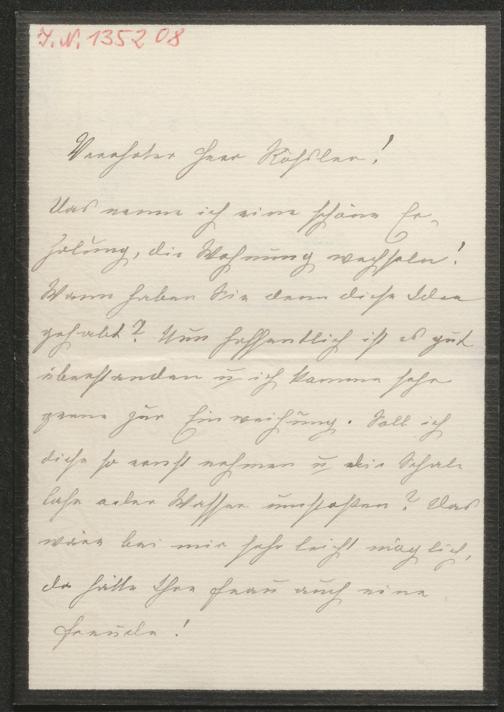 J. N. 135208
Verehrter Herr Rössler!
Das nenne ich eine schöne Er-
holung, die Wohnung wechseln!
Wann haben Sie denn diese Idee
gehabt? Nun hoffentlich ist es gut
überstanden u ich komme sehr
gerne zur Einweihung. Soll ich
diese so ernst nehmen u die Schale
oder Wasser umstoßen? Das
wäre bei mir sehr leicht möglich,
da hätte Ihre Frau auch eine
Freude!